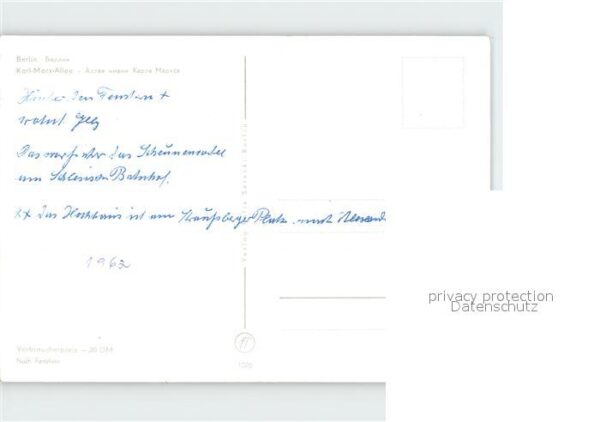 Berlin · Берлин
Karl-Marx-Allee - Аллея имени Карла Маркса
Hinter den Fenstern +
wohnt
Das war früher das Scheunenviertel
am Schlesischen Bahnhof.
++ das Hochhaus ist am Straußberger Platz nach Alexand
1962
Verbraucherpreis — ,20 DM
Nach Farbfoto
privacy protection
Datenschutz